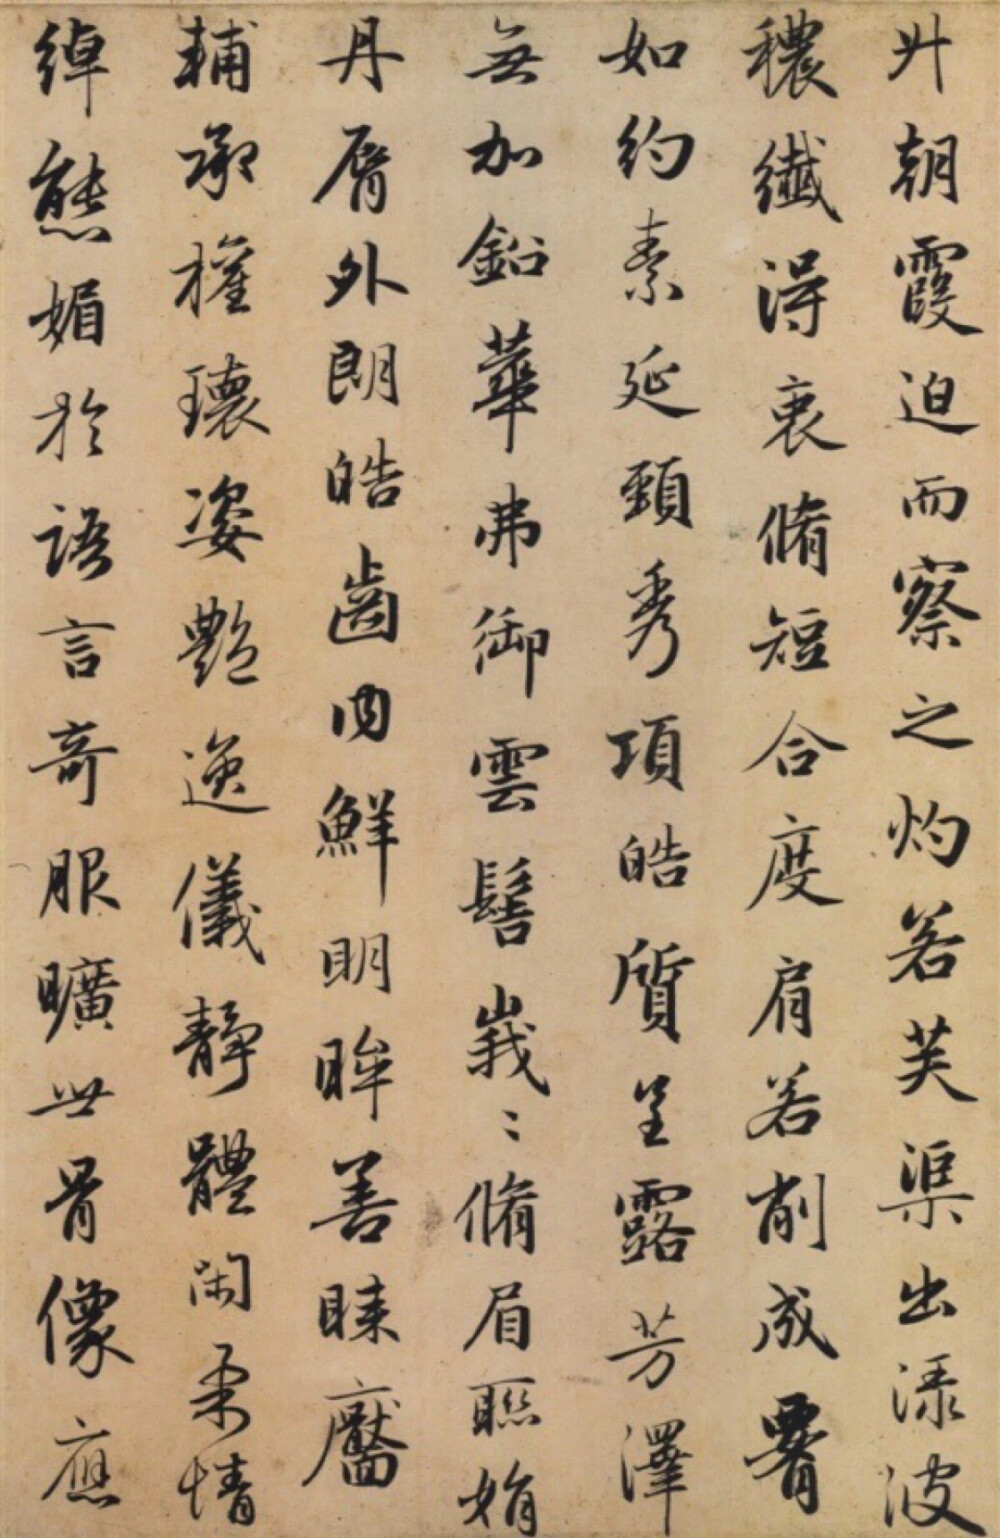 升朝霞迫而察之灼若芙渠出渌波
穠纖得衷脩短合度肩若削成署
如約素延頸秀項皓質呈露芳澤
無加鉛華弗御雲髻峩〻脩眉聯娟
丹脣外朗皓齒內鮮明眸善睞靨
輔承權瓌姿艷逸儀靜體閑柔情
綽態媚於語言奇服曠世骨像應